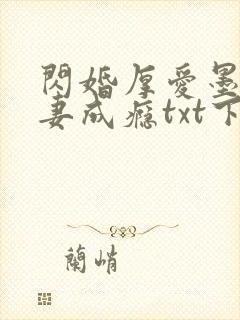 閃婚厚愛墨
妻成癮txt下
蘭峭